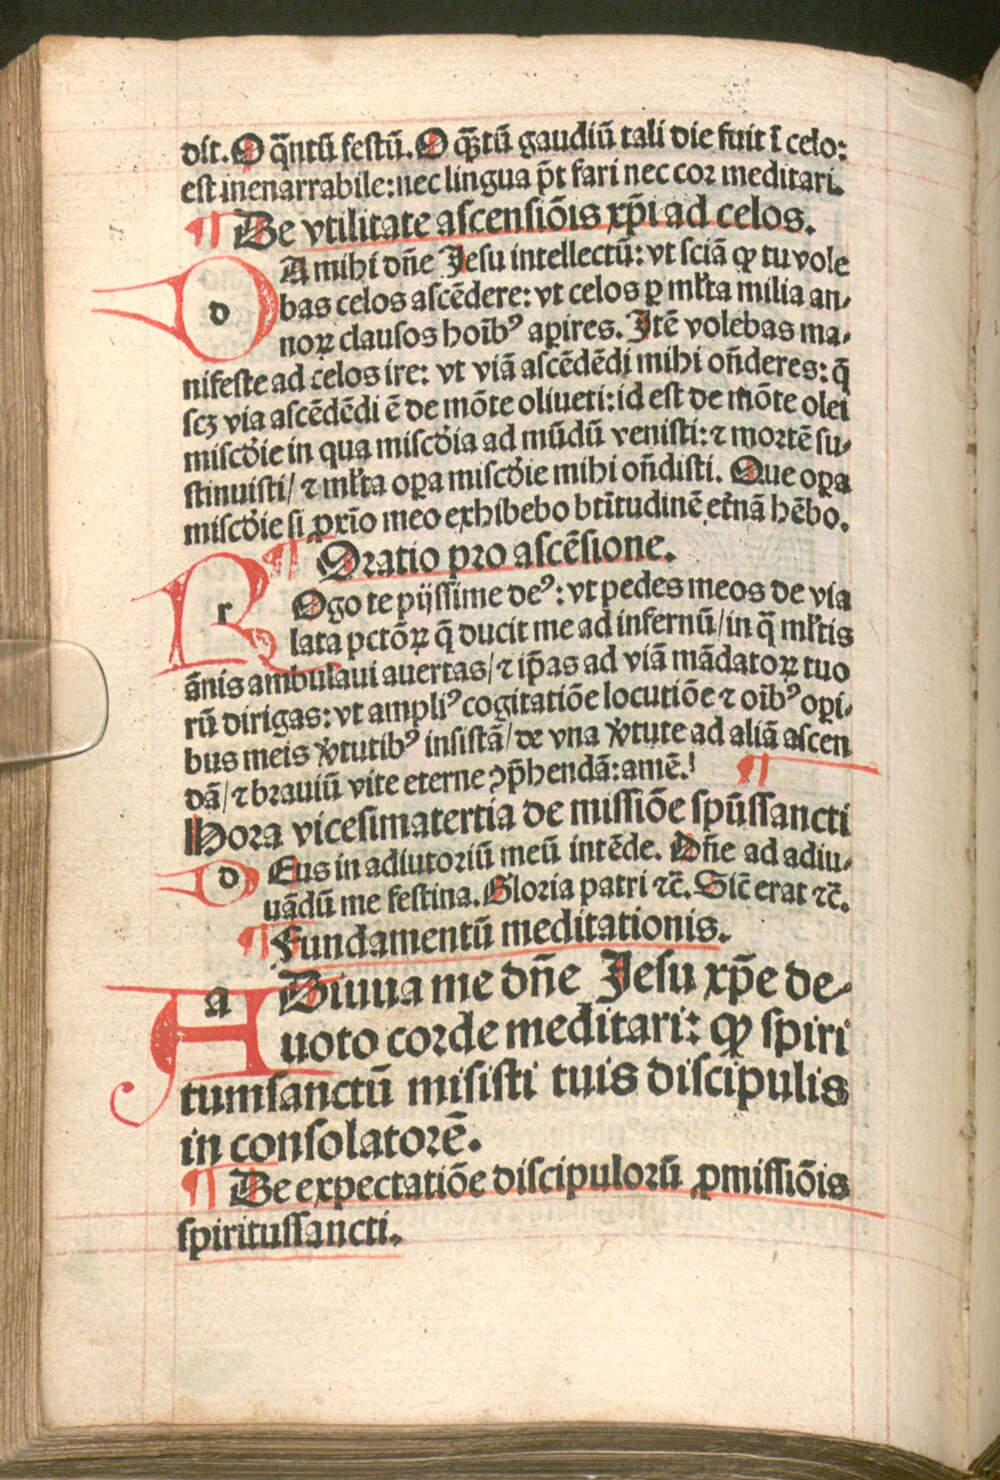 dit. O q̄ntū festū. O q̄tū gaudiū tali die fuit ī celo:
est inenarrabile: nec lingua p̄t fari nec cor meditari.
¶ De vtilitate ascensiōis xp̄i ad celos.
d DA mihi dn̄e Jesu intellectū: vt sciā ꝙ tu vole
bas celos ascēdere: vt celos ꝑ ml̄ta milia an-
noꝝ clausos hoīb⁹ aꝑires. Itē volebas ma-
nifeste ad celos ire: vt viā ascēdēdi mihi on̄deres: q̄
scꝫ via ascēdēdi ē de mōte oliueti: id est de mōte olei
miscd̄ie in qua miscd̄ia ad mūdū venisti: ⁊ mortē su-
stinuisti/ ⁊ ml̄ta oꝑa miscd̄ie mihi on̄disti. Que oꝑa
miscd̄ie si ꝓxīo meo exhibebo btītudinē et̄nā hēbo.
¶ Oratio pro ascēsione.
r ROgo te pijssime de⁹: vt pedes meos de via
lata pctōꝝ q̄ ducit me ad infernū/ in q̄ ml̄tis
ānis ambulaui auertas/ ⁊ ip̄as ad viā mādatoꝝ tuo
rū dirigas: vt ampli⁹ cogitatiōe locutiōe ⁊ oīb⁹ oꝑi-
bus meis v̄tutib⁹ insistā/ de vna v̄tute ad aliā ascen
dā/ ⁊ brauiū vite eterne ꝯp̄hendā: amē. ¶
Hora vicesimatertia de missiōe spūssancti
d DEus in adiutoriū meū intēde. Dn̄e ad adiu-
uādū me festina. Gloria patri ⁊c̄. Sic̄ erat ⁊c̄.
¶ Fundamentū meditationis.
a ADiuua me dn̄e Jesu xp̄e de-
uoto corde meditari: ꝙ spiri
tumsanctū misisti tuis discipulis
in consolatorē.
¶ De expectatiōe discipulorū ꝓmissiōis
spiritussancti.